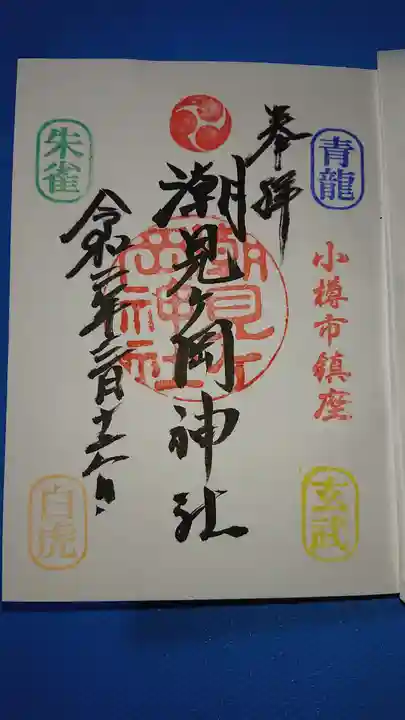 奉拝
青龍
小樽市鎮座
玄武
潮見ヶ岡神社
潮見ヶ岡神社
朱雀
令和二年
白虎